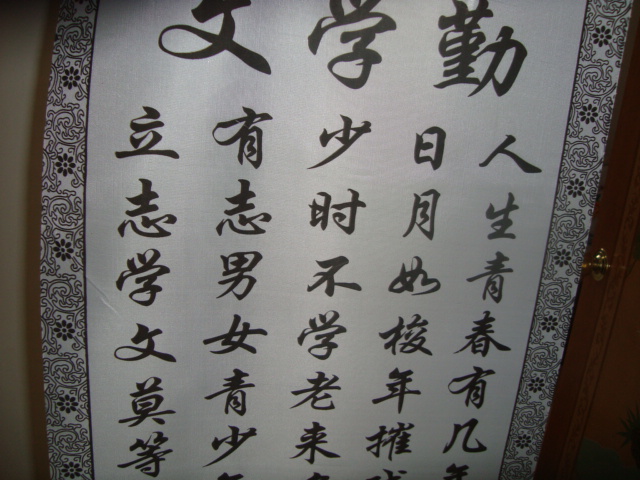 勤学文
人生青春有几年
日月如梭年摧
少时不学老来
有志男女青少年
立志学文莫等